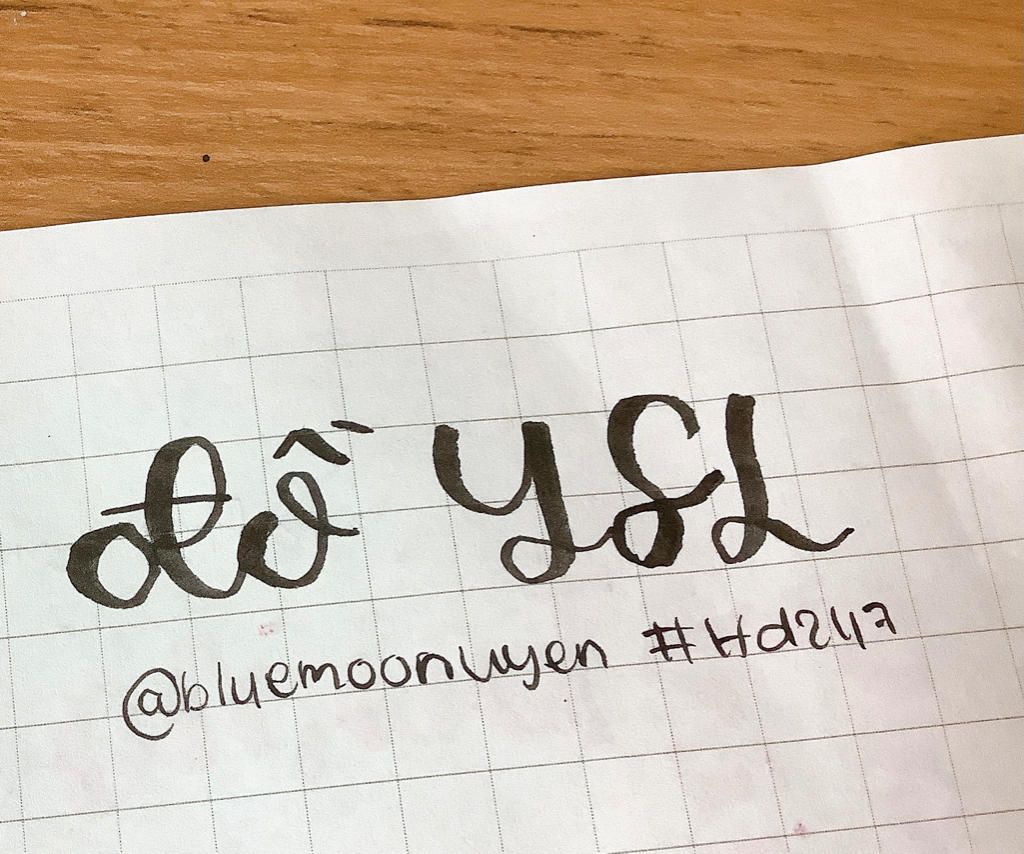 đồ YSL
@bluemoonuyen #Hd247